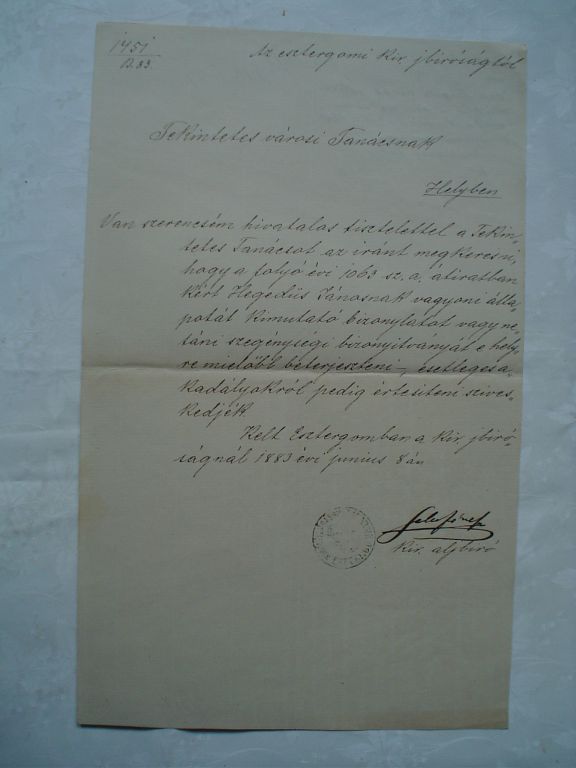 1451
B.83
Az esztergomi kir. jbiróságtól
Tekintetes városi Tanácsnak
Helyben
Van szerencsém hivatalos tisztelettel a Tekin-
tetes Tanácsot az iránt megkeresni,
hogy a folyó évi 1063 sz. a. átiratban
kért Hegedüs Jánosnak vagyoni álla-
potát kimutató bizonylatot vagy ne-
táni szegénységi bizonyitványát e hely-
re mielőbb béterjeszteni – esetleges a-
kadályokról pedig értesiteni szives-
kedjék.
Kelt Esztergomban a kir. jbiró-
ságnál 1883 évi junius 8 án
kir. aljbiró